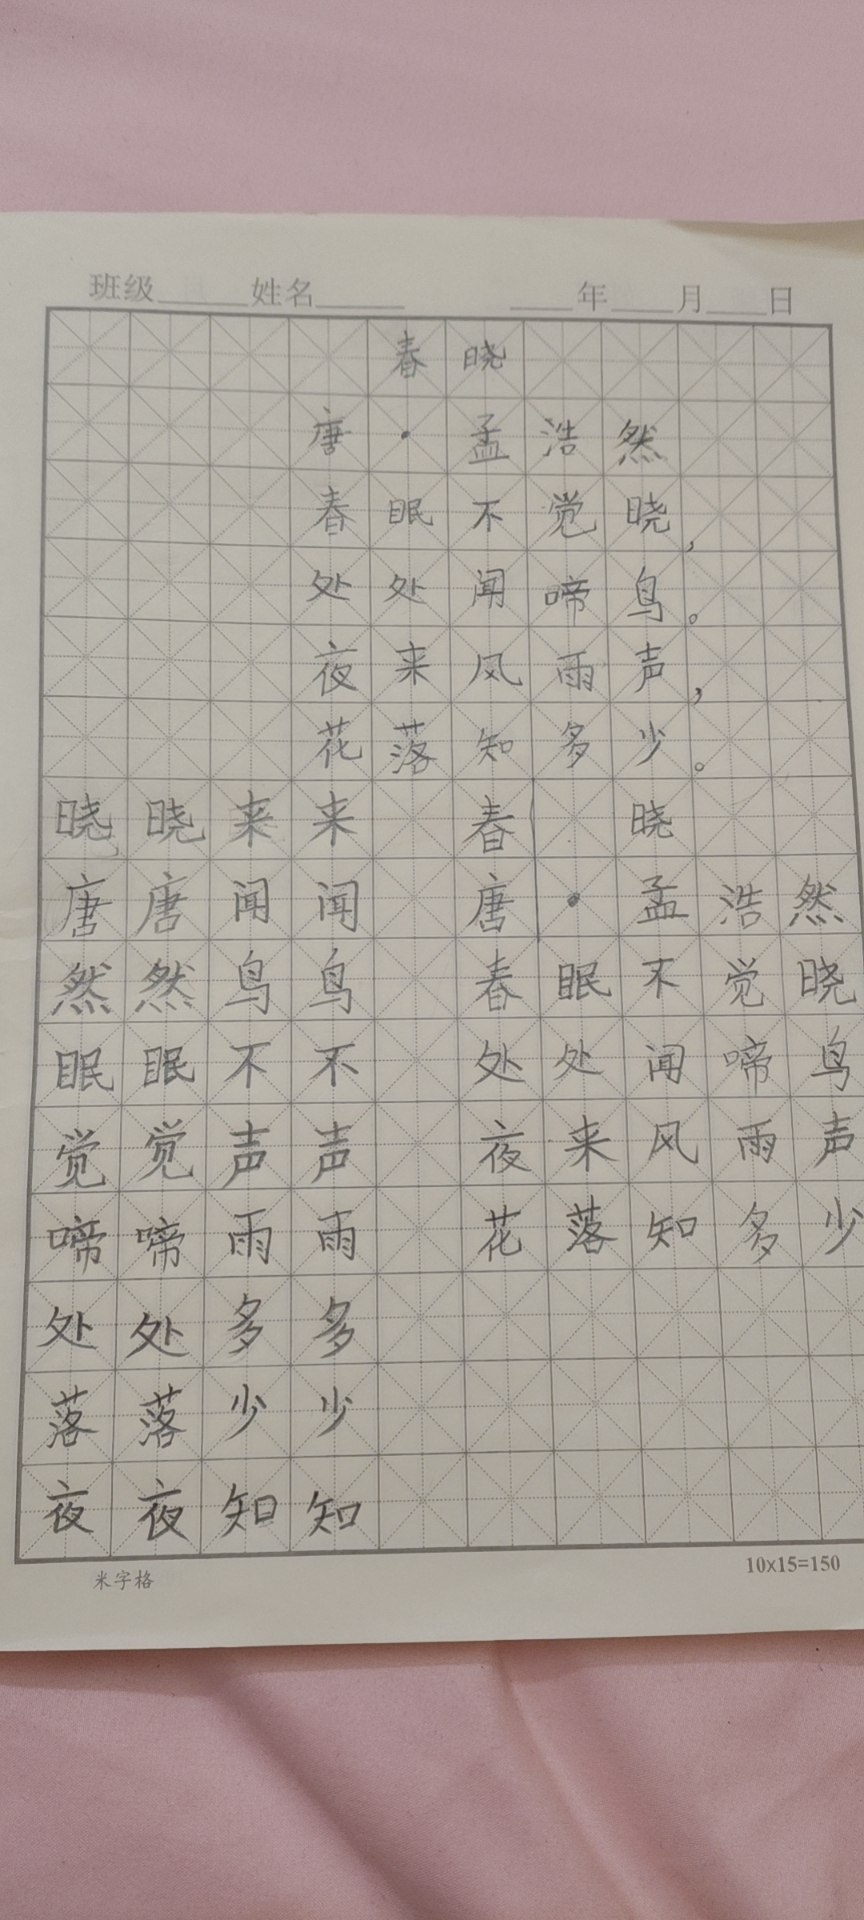 班级______姓名______ ____年____月____日
春晓
唐·孟浩然
春眠不觉晓，
处处闻啼鸟。
夜来风雨声，
花落知多少。
晓晓来来 春 晓
唐唐闻闻 唐·孟浩然
然然鸟鸟 春眠不觉晓
眠眠不不 处处闻啼鸟
觉觉声声 夜来风雨声
啼啼雨雨 花落知多少
处处多多
落落少少
夜夜知知
米字格 10×15=150